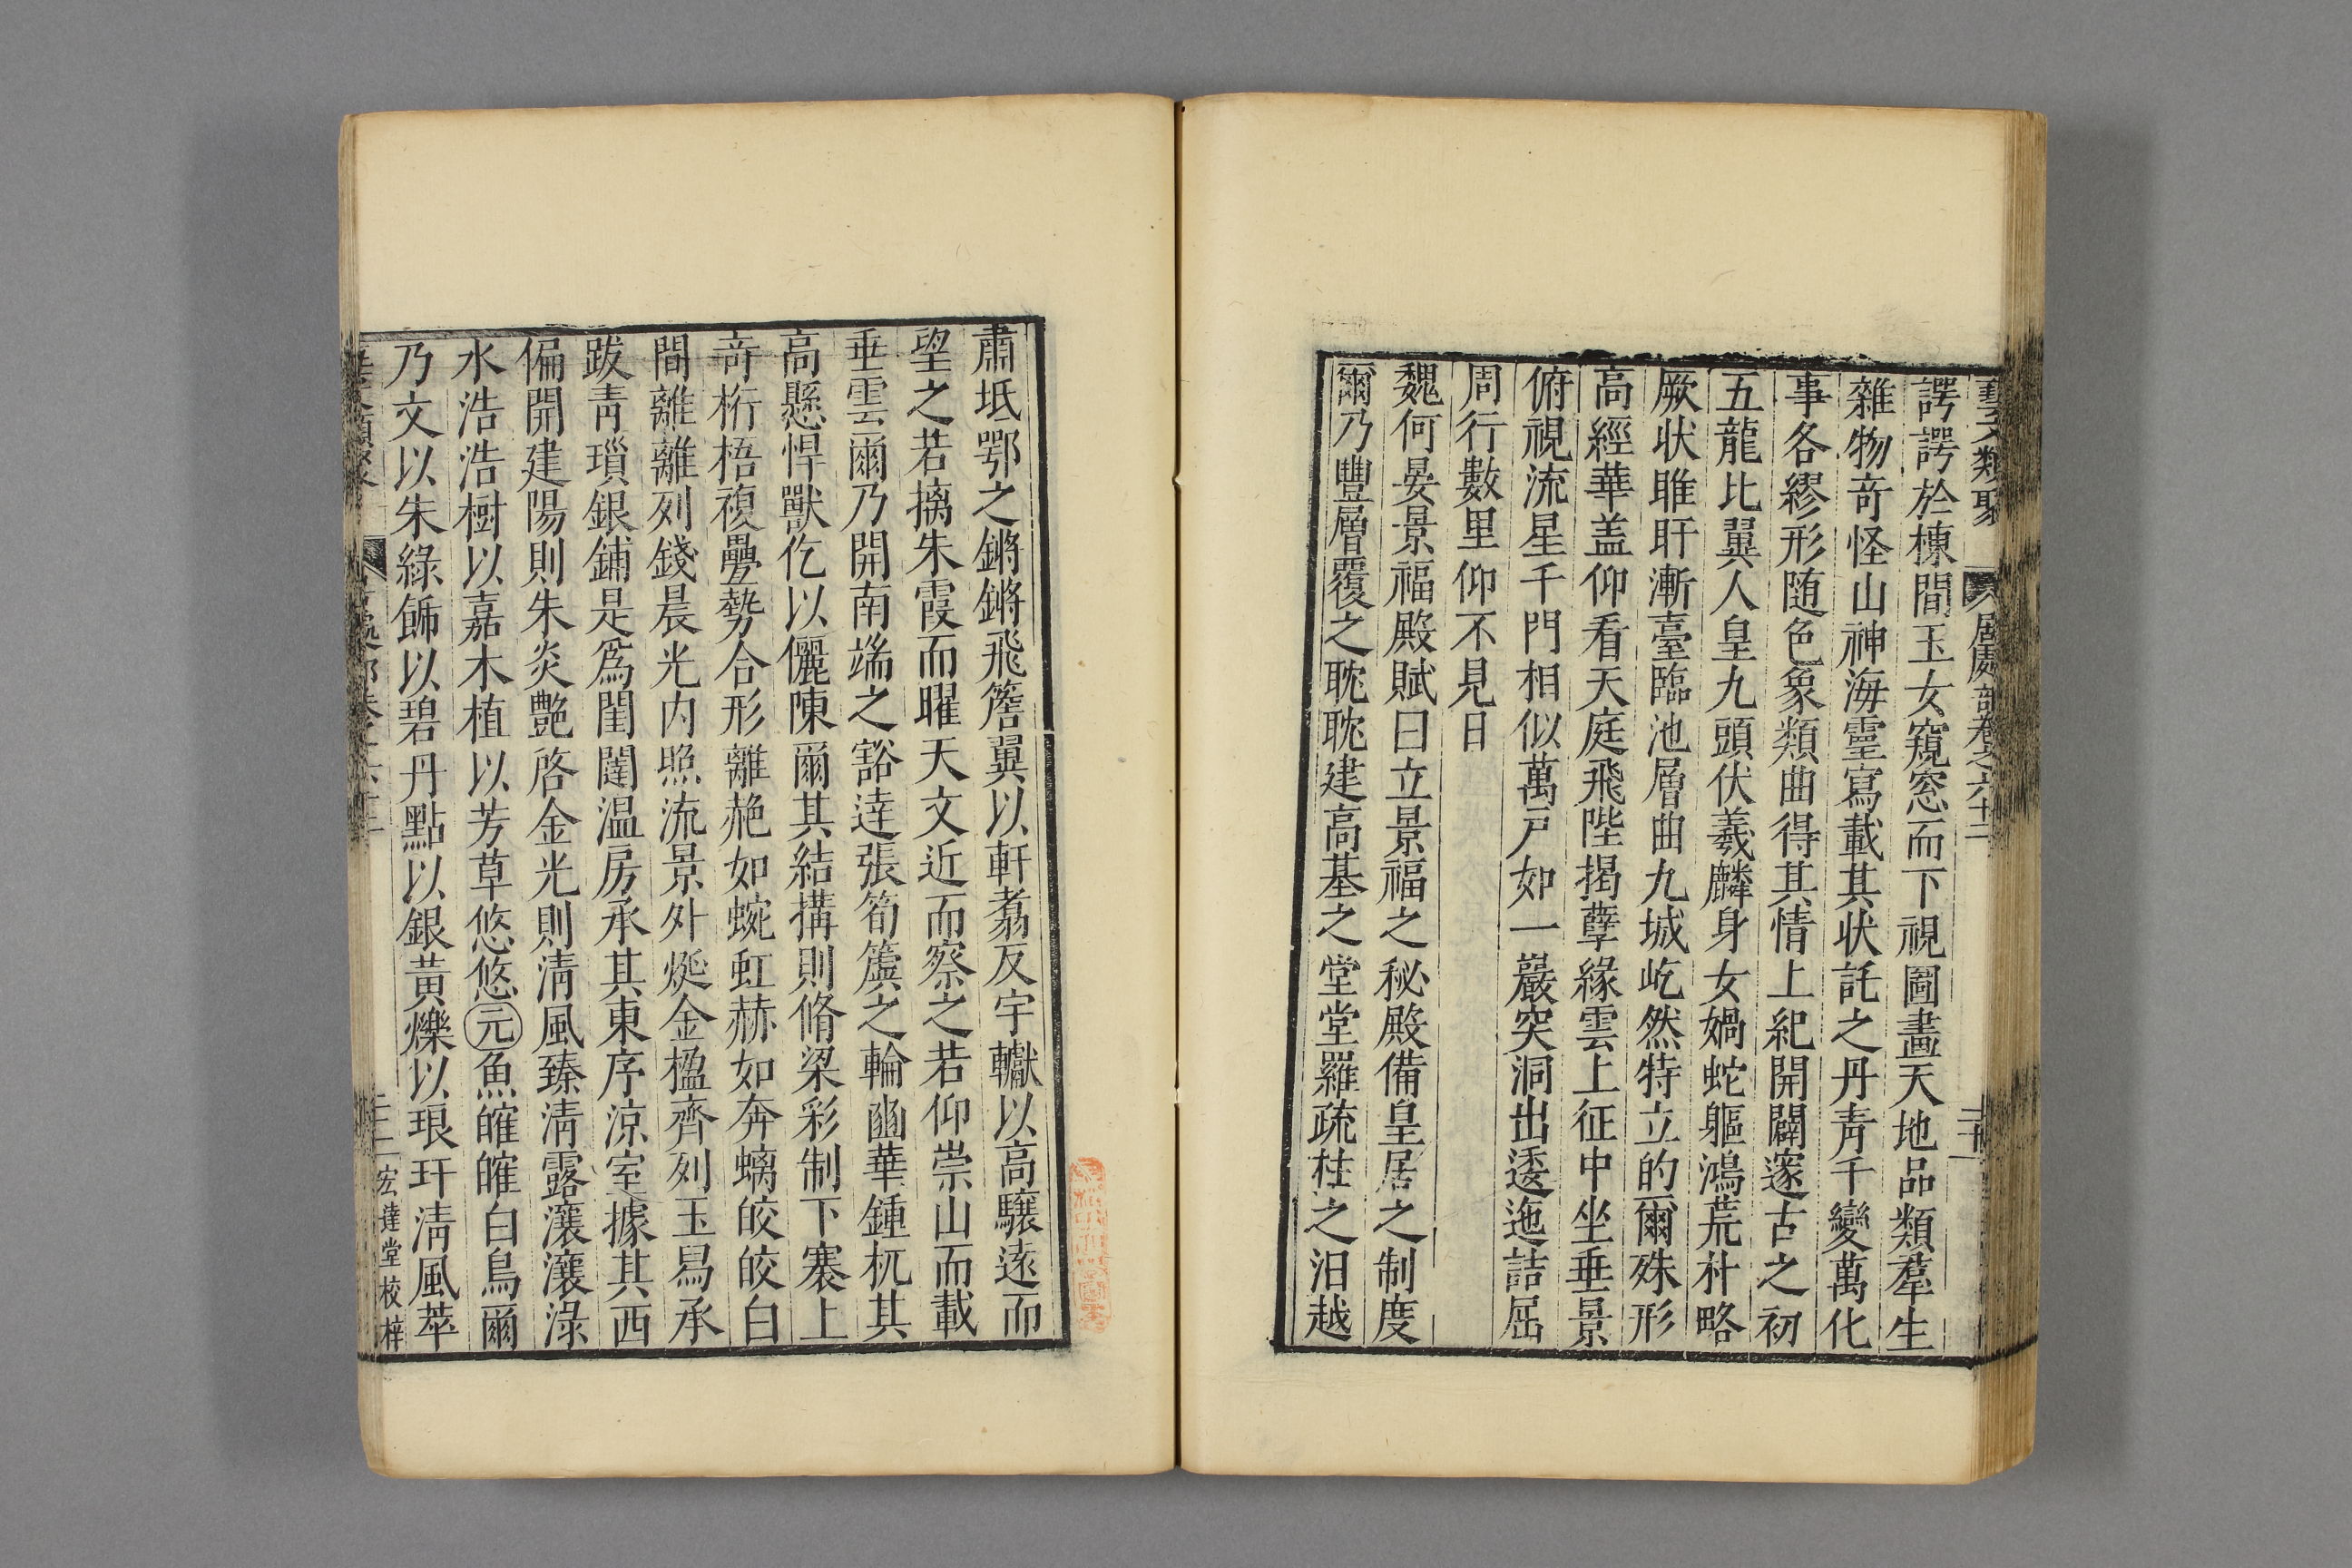 藝文類聚 居處部卷之六十二
諤諤於棟間玉女窺窓而下視圖畫天地品類羣生
雜物奇怪山神海靈寫載其狀託之丹青千變萬化
事各繆形随色象類曲得其情上紀開闢邃古之初
五龍比翼人皇九頭伏羲麟身女媧蛇軀鴻荒朴略
厥狀睢盱漸臺臨池層曲九城屹然特立的爾殊形
高經華盖仰看天庭飛陛揭孽緣雲上征中坐垂景
俯視流星千門相似萬戶如一巖突洞出逶迤詰屈
周行數里仰不見日
魏何晏景福殿賦曰立景福之秘殿備皇居之制度
爾乃豐層覆之耽耽建高基之堂堂羅疏柱之汨越
肅坻鄂之鏘鏘飛簷翼以軒翥反宇轍以高驤遠而
望之若摛朱霞而曜天文近而察之若仰崇山而載
垂雲爾乃開南端之豁達張筍簴之輪豳華鍾杌其
高懸悍獸仡以儷陳爾其結搆則脩梁彩制下褰上
奇桁梧複疊勢合形離赩如蜿虹赫如奔螭皎皎白
間離離列錢晨光內照流景外烻金楹齊列玉舄承
跋青瑣銀鋪是爲閨闥温房承其東序涼室據其西
偏開建陽則朱炎艷啓金光則淸風臻淸露瀼瀼淥
水浩浩樹以嘉木植以芳草悠悠元魚皠皠白鳥爾
乃文以朱綠飾以碧丹點以銀黃爍以琅玕淸風萃
宏達堂校梓